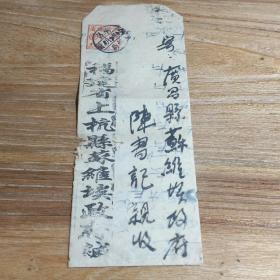 寄广昌縣蘇維埃政府
陳書記親收
福建省上杭縣蘇維埃政府緘